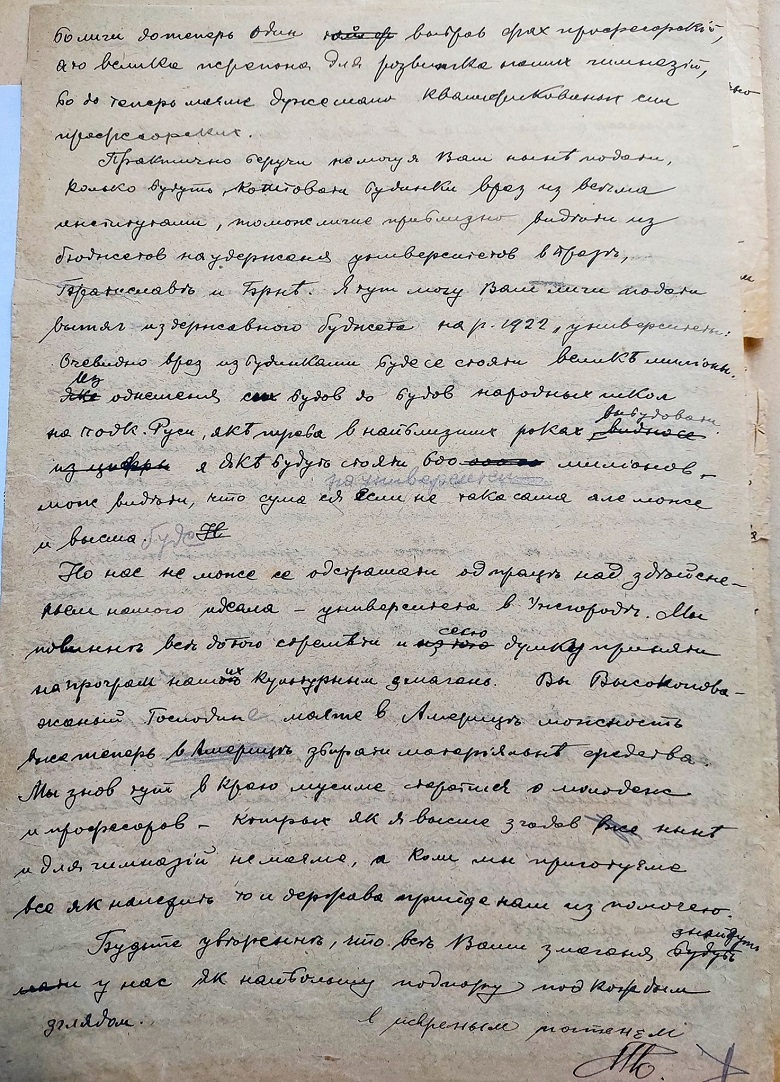 бо лиш дотеперь один выбрав фах професорскій,
а то велика перепона для розвитка наших гимназій,
бо до теперь маеме дуже мало квалификованых сил
професорских.
Практично беручи не могу я Вам нынѣ подати,
колько будуть коштовати будинки враз из всѣма
институтами, но можливе приблизно видѣти из
бюджетов на удержаня университетов в Празѣ,
Братиславѣ и Брнѣ. Я тут могу Вам лиш подати
вытяг из державного буджета на р. 1922 „университети:
Очевидно враз из будинками буде се стояти великѣ миліоны.
Из
однешеня сих будов до будов народных школ
выбудовати
на Подк. Руси, якѣ треба в найблизших роках
из цифри я якѣ будуть стояти миліонов
на университет
мож видѣти, что сума ся если не така сама але може
и высша буде
Но нас не може се одстрашати од працѣ над здѣйсне-
ньем нашого идеала – университета в Ужгородѣ. Мы
сесю
повиннѣ всѣ до того стремѣти и из того думку приняти
на програм наших культурным змагань. Вы Высокопова-
жаный Господине маете в Америцѣ можность
вже теперь в Америцѣ збирати матеріяльнѣ средства.
Мы знов тут в краю мусиме старатися о молодеж
и професоров – котрых як я высше згадав вже нынѣ
и для гимназій не маеме, а коли мы приготуеме
все як належить то и держава прийде нам из помочею.
знайдуть
Будьте увѣреннѣ, что всѣ Ваши змаганя будуть
мати у нас як найбольшу подпору под каждым
зглядом.
в искреным